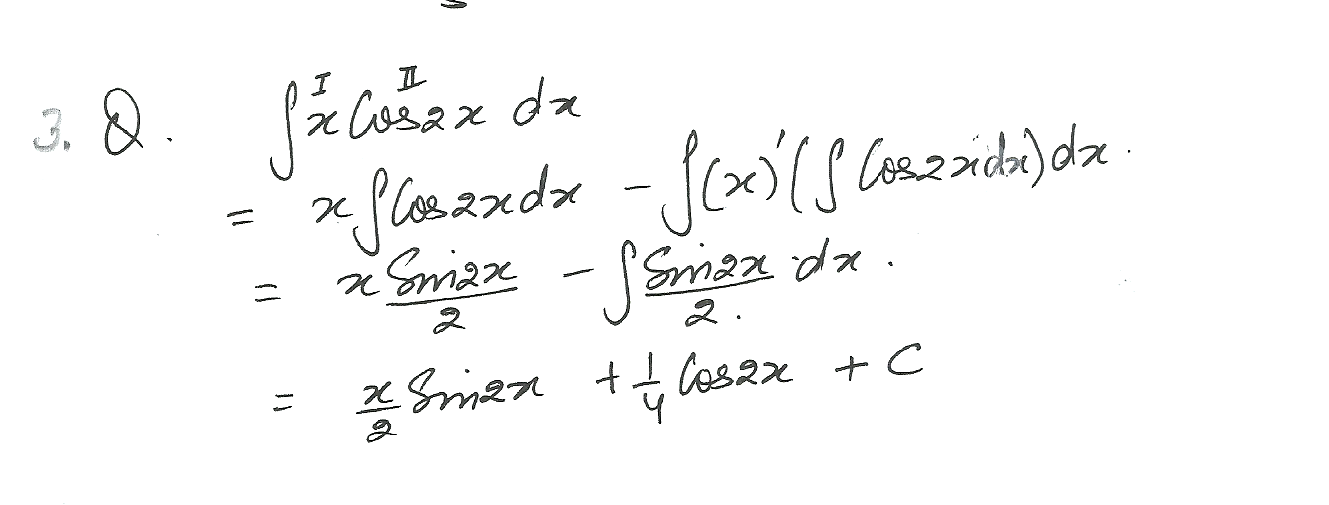 3. Q. ∫ x^I Cos^II 2x dx
= x ∫ Cos 2x dx − ∫ (x)′ ( ∫ Cos 2x dx ) dx .
= x Sin2x/2 − ∫ Sin2x/2 . dx .
= x/2 Sin2x + 1/4 Cos2x + C